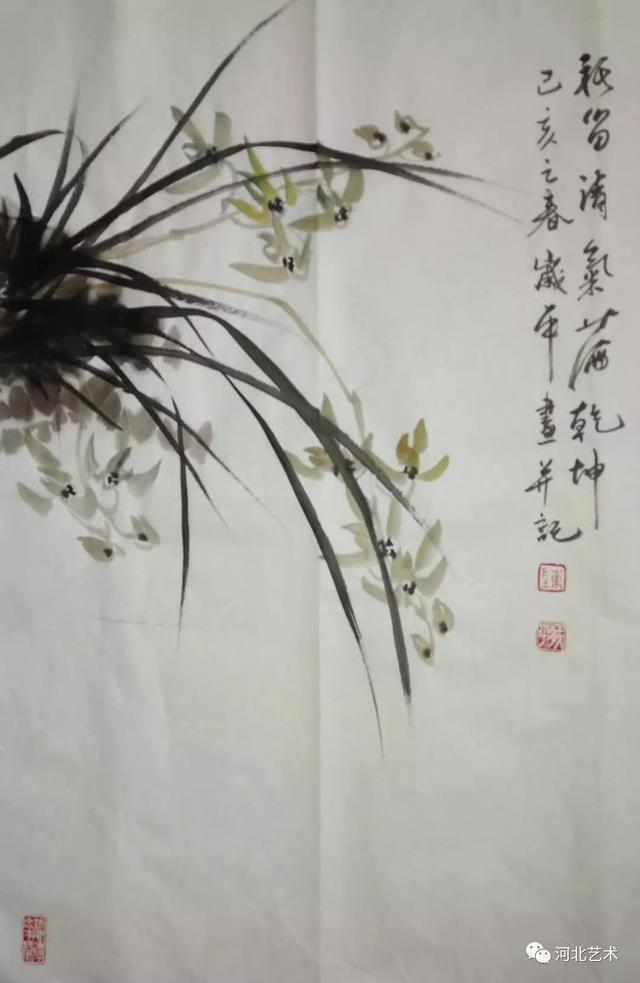 祇留清氣滿乾坤
己亥之春歲平畫并記
河北艺术